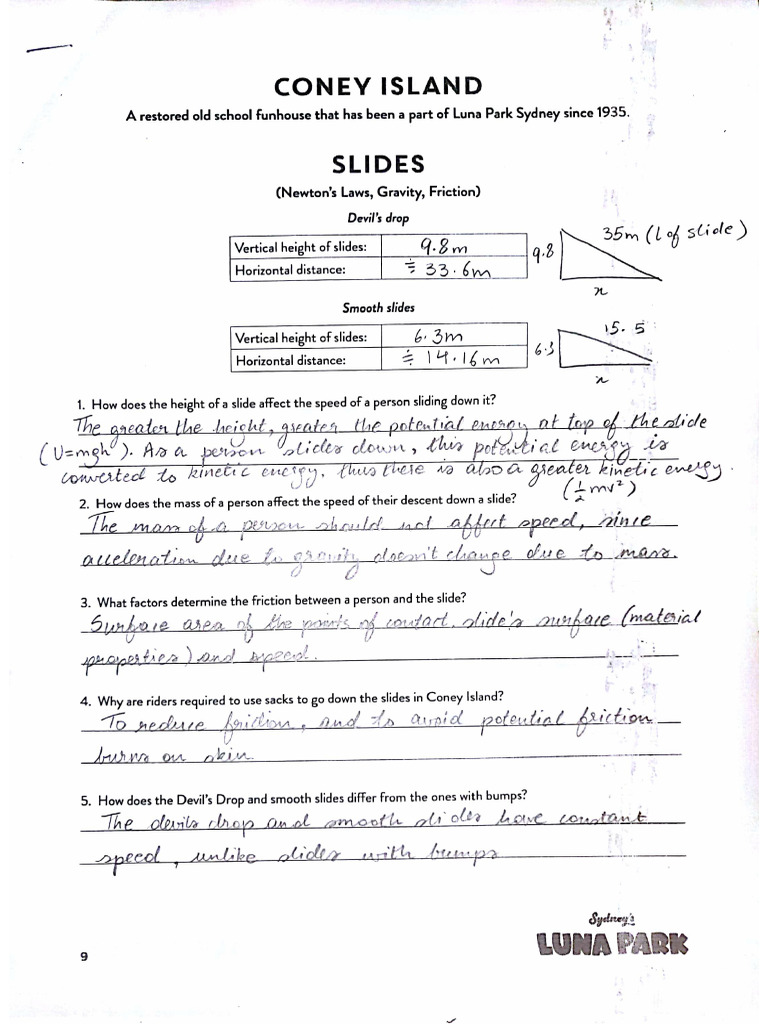 CONEY ISLAND
A restored old school funhouse that has been a part of Luna Park Sydney since 1935.
SLIDES
(Newton's Laws, Gravity, Friction)
Devil's drop
Vertical height of slides: 9.8m
Horizontal distance: ≑ 33.6m
9.8
35m (l of slide)
x
Smooth slides
Vertical height of slides: 6.3m
Horizontal distance: ≑ 14.16m
6.3
15.5
x
1. How does the height of a slide affect the speed of a person sliding down it?
The greater the height, greater the potential energy at top of the slide
(U=mgh). As a person slides down, this potential energy is
converted to kinetic energy, thus there is also a greater kinetic energy.
(½mv²)
2. How does the mass of a person affect the speed of their descent down a slide?
The mass of a person should not affect speed, since
acceleration due to gravity doesn't change due to mass.
3. What factors determine the friction between a person and the slide?
Surface area of the points of contact, slide's surface (material
properties) and speed.
4. Why are riders required to use sacks to go down the slides in Coney Island?
To reduce friction, and to avoid potential friction
burns on skin.
5. How does the Devil's Drop and smooth slides differ from the ones with bumps?
The devils drop and smooth slides have constant
speed, unlike slides with bumps
Sydney's
LUNA PARK
9